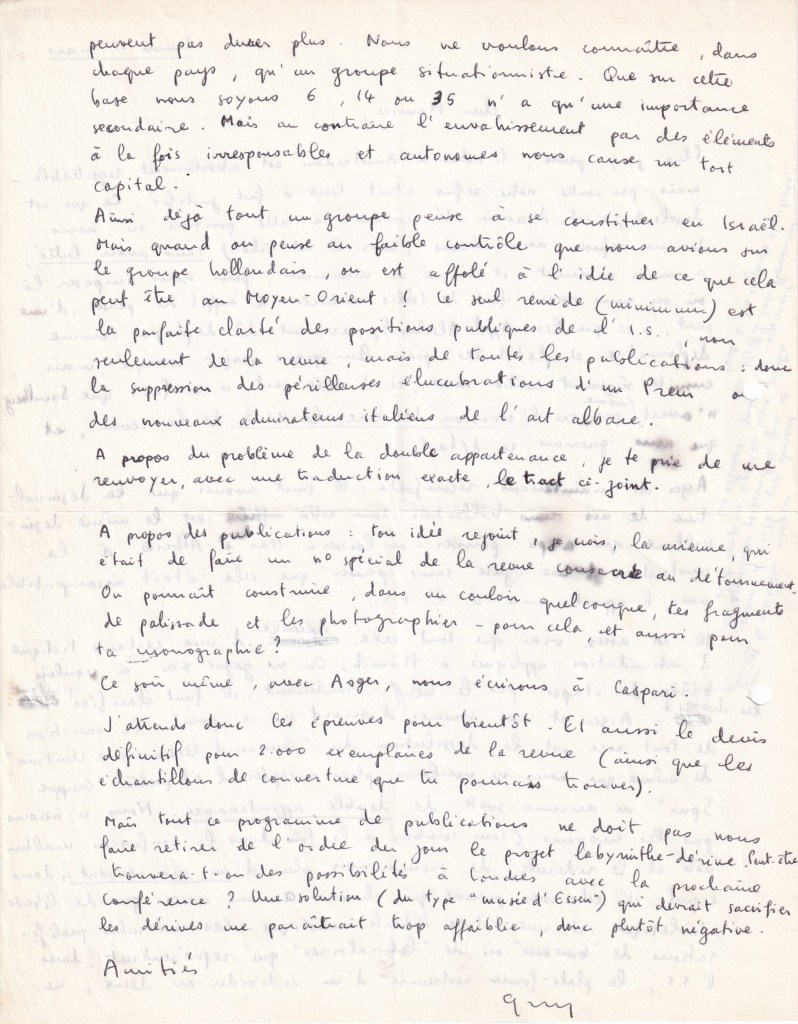 peuvent pas durer plus. Nous ne voulons connaître, dans
chaque pays, qu'un groupe situationniste. Que sur cette
base nous soyons 6, 14 ou 35 n'a qu'une importance
secondaire. Mais au contraire l'envahissement par des éléments
à la fois irresponsables et autonomes nous cause un tort
capital.
Ainsi déjà tout un groupe pense à se constituer en Israël.
Mais quand on pense au faible contrôle que nous avions sur
le groupe hollandais, on est affolé à l'idée de ce que cela
peut être au Moyen-Orient ! Le seul remède (minimum) est
la parfaite clarté des positions publiques de l'I.S., non
seulement de la revue, mais de toutes les publications : donc
la suppression des périlleuses élucubrations d'un Prem ou
des nouveaux admirateurs italiens de l'art albare.
A propos du problème de la double appartenance, je te prie de me
renvoyer, avec une traduction exacte, le tract ci-joint.
A propos des publications : ton idée rejoint, je crois, la mienne, qui
était de faire un nº spécial de la revue consacré au détournement.
On pourrait construire, dans un couloir quelconque, tes fragments
de palissade et les photographier - pour cela, et aussi pour
ta monographie ?
Ce soir même, avec Asger, nous écrirons à Caspari.
J'attends donc les épreuves pour bientôt. Et aussi le devis
définitif pour 2.000 exemplaires de la revue (ainsi que les
échantillons de couverture que tu pourrais trouver).
Mais tout ce programme de publications ne doit pas nous
faire retirer de l'ordre du jour le projet labyrinthe-dérive. Peut-être
trouvera-t-on des possibilités à Londres avec la prochaine
Conférence ? Une solution (du type "musée d'Essen") qui devrait sacrifier
les dérives me paraîtrait trop affaiblie, donc plutôt négative.
Amitiés
Guy